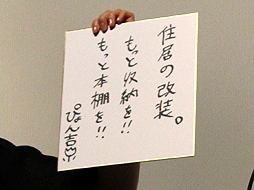 住居の改装。
もっと収納を!!
もっと本棚を!!
ぴょん吉